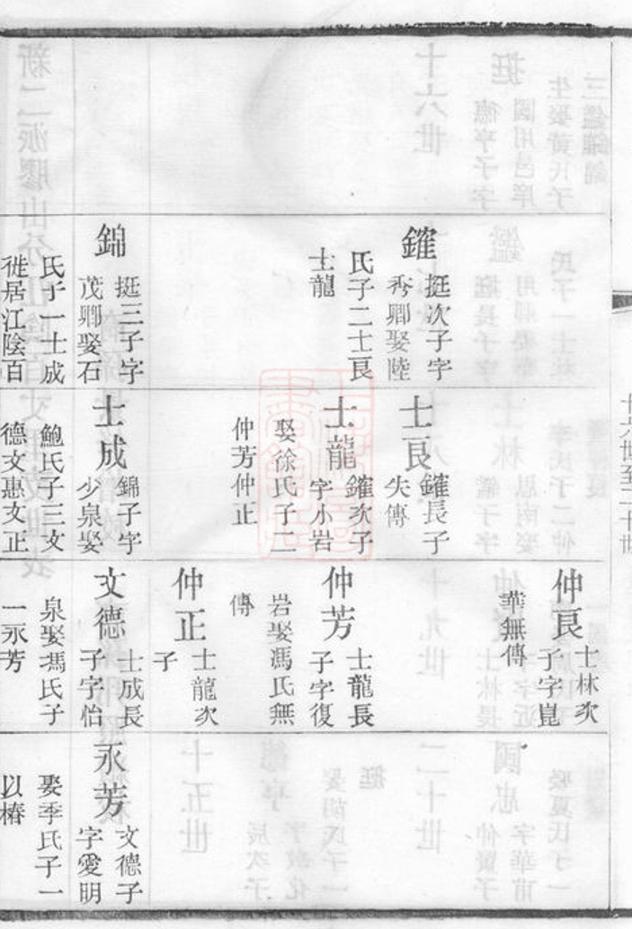 十六世至二十世
鑵
挺次子字
秀卿娶陸
氏子二士良
士龍
錦
挺三子字
茂卿娶石
氏子一士成
徙居江陰百
士良
鑵長子
失傳
士龍
鑵次子
字小岩
娶徐氏子二
仲芳仲正
士成
錦子字
少泉娶
鮑氏子三文
德文惠文正
仲良
士林次
子字崑
華無傳
仲芳
士龍長
子字復
岩娶馮氏無
傳
仲正
士龍次
子
文德
士成長
子字怡
泉娶馮氏子
一永芳
永芳
文德子
字愛明
娶季氏子一
以椿